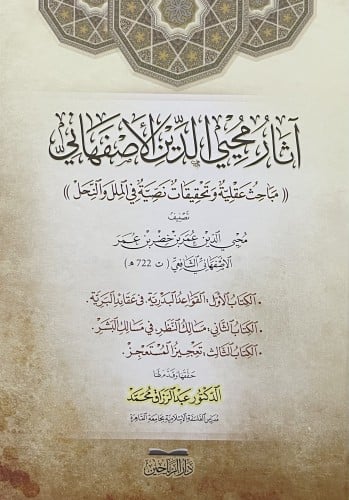 آثار محيي الدين الأصفهاني
(( مباحث عقلية وتحقيقات نصية في الملل والنحل ))
تصنيف
محيي الدين عمر بن خضر بن عمر
الأصفهاني الشافعي ( ت 722 هـ )
• الكتاب الأول: القواعد البدرية، في عقايد البرية.
• الكتاب الثاني: مسالك النظر في مسالك البشر.
• الكتاب الثالث: تعجيز المستعجز.
حققها وقدم لها
الدكتور عبد الرزاق محمد
مدرس الفلسفة الإسلامية بجامعة القاهرة
دار الرياحين